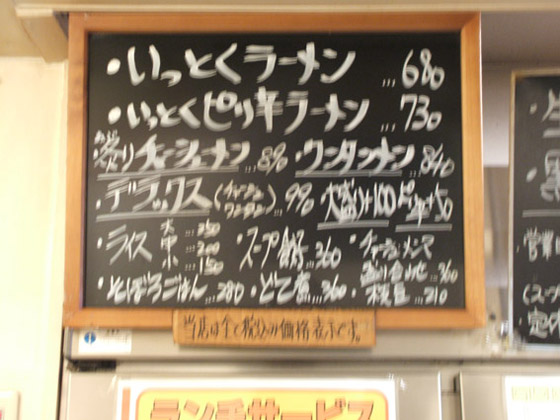 ・いっとくラーメン …680
・いっとくピリ辛ラーメン …730
炙りチャーシューメン …890 ・ワンタンメン …840
・デラックス (チャーシュー ワンタンメン) …990 大盛り+100 ピリ辛+50
・ライス 大 …250
中 …200
小 …150
・スープ餃子 …360
・チャーシューメンマ
盛り合わせ …360
・そぼろごはん …280 ・どて煮 …360 ・枝豆 …210
当店は全て税込の価格表示です。
ランチサービス
営業